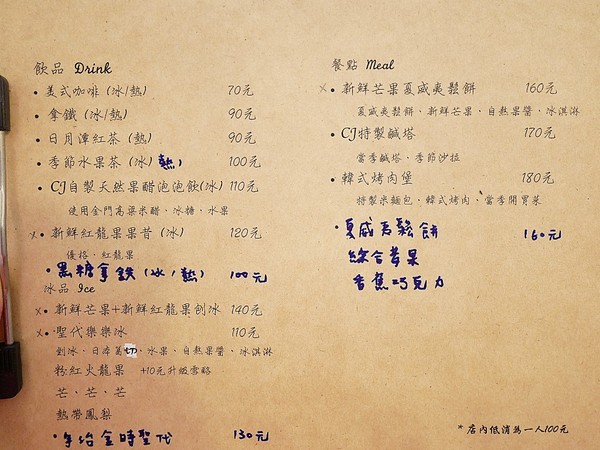 飲品 Drink
• 美式咖啡 (冰/熱) 70元
• 拿鐵 (冰/熱) 90元
• 日月潭紅茶 (熱) 90元
• 季節水果茶 (冰) 熱) 100元
• CJ自製天然果醋泡泡飲(冰) 110元
使用金門高粱米醋、冰糖、水果
x • 新鮮紅龍果果昔 (冰) 120元
優格、紅龍果
• 黑糖拿鐵 (冰/熱) 100元
冰品 Ice
x • 新鮮芒果+新鮮紅龍果刨冰 140元
x • 聖代樂樂冰 110元
刨冰、日本葛切、水果、自熬果醬、冰淇淋
粉紅火龍果 +10元升級雪酪
芒、芒、芒
熱帶鳳梨
• 宇治金時聖代 130元
餐點 Meal
x • 新鮮芒果夏威夷鬆餅 160元
夏威夷鬆餅、新鮮芒果、自熬果醬、冰淇淋
• CJ特製鹹塔 170元
當季鹹塔、季節沙拉
• 韓式烤肉堡 180元
特製米麵包、韓式烤肉、當季開胃菜
• 夏威夷鬆餅 160元
綜合莓果
香蕉巧克力
* 店內低消為一人100元